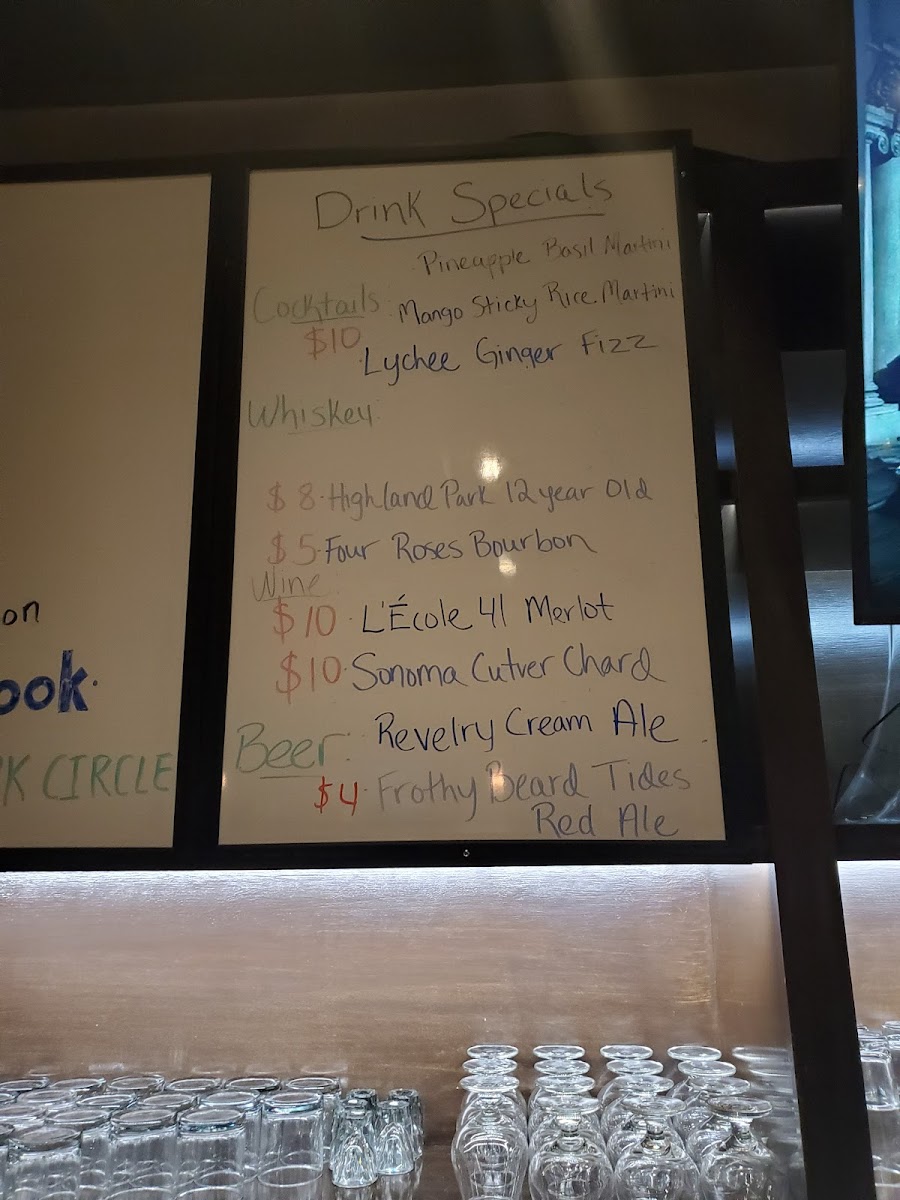 on
ook.
K CIRCLE
Drink Specials
Pineapple Basil Martini
Cocktails: Mango Sticky Rice Martini
$10 Lychee Ginger Fizz
Whiskey:
$8 · Highland Park 12 year Old
$5 · Four Roses Bourbon
Wine
$10 · L'École 41 Merlot
$10 · Sonoma Cutver Chard
Beer: Revelry Cream Ale
$4 · Frothy Beard Tides
Red Ale